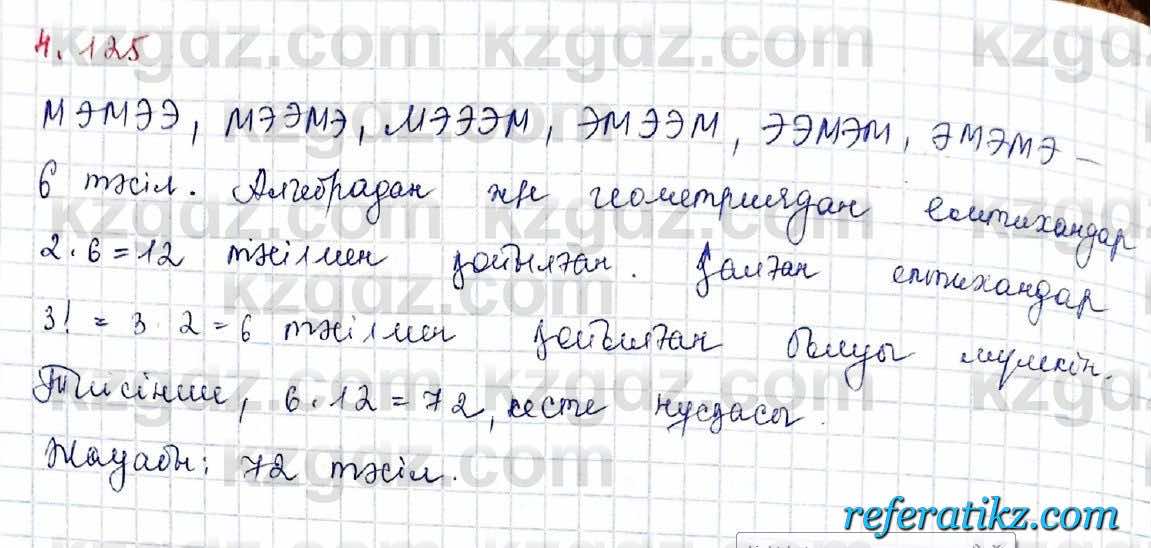 4.125
МӘМӘӘ, МӘӘМӘ, МӘӘӘМ, ӘМӘӘМ, ӘӘМӘМ, ӘМӘМӘ –
6 тәсіл. Алгебрадан және геометриядан емтихандар
2·6=12 тәсілмен қойылған. Қалған емтихандар
3! = 3·2=6 тәсілмен қойылған болуы мүмкін.
Тиісінше, 6·12=72, кесте нұсқасы.
Жауабы: 72 тәсіл.
kzgdz.com
referatikz.com